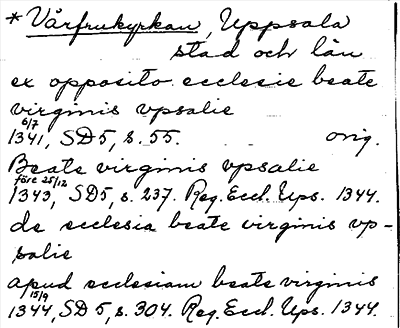 * Vårfrukyrkan, Uppsala
stad och län
ex opposito ecclesie beate
virginis vpsalie
6/7
1341, SD5, s. 55. orig.
Beate virginis vpsalie
före 25/12
1343, SD5, s. 237. Reg. Eccl. Ups. 1344.
de ecclesia beate virginis vp-
salie
apud ecclesiam beate virginis
15/9
1344, SD5, s. 304. Reg. Eccl. Ups. 1344.